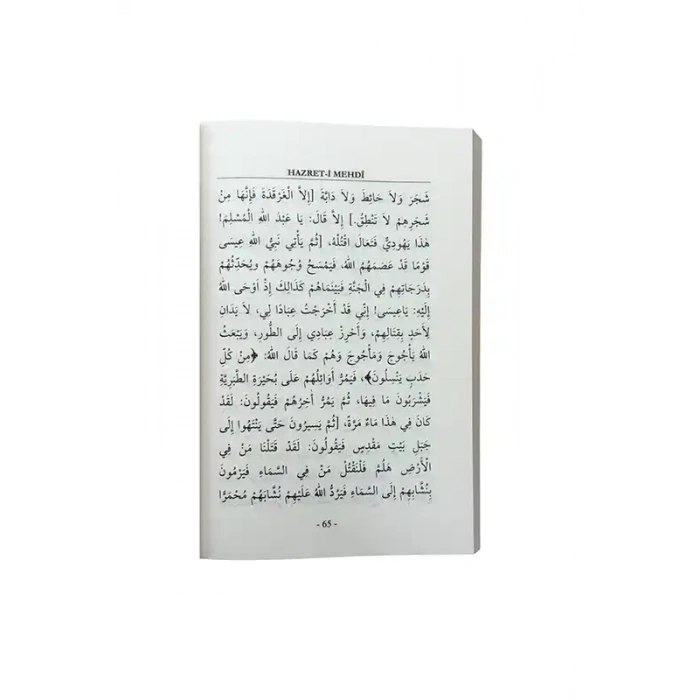 HAZRET-İ MEHDÎ
شَجَرَ وَلاَ حَائِطَ وَلاَ دَابَّةَ [إِلاَّ الْغَرْقَدَةَ فَإِنَّهَا مِنْ
شَجَرِهِمْ لاَ تَنْطِقُ.] إِلاَّ قَالَ: يَا عَبْدَ اللهِ الْمُسْلِمَ!
هَذَا يَهُودِيٌّ فَتَعَالَ اقْتُلْهُ، [ثُمَّ يَأْتِي نَبِيُّ اللهِ عِيسَى
قَوْمًا قَدْ عَصَمَهُمُ اللهُ، فَيَمْسَحُ وُجُوهَهُمْ وَيُحَدِّثُهُمْ
بِدَرَجَاتِهِمْ فِي الْجَنَّةِ فَبَيْنَمَاهُمْ كَذَالِكَ إِذْ اَوْحَى اللهُ
إِلَيْهِ: يَاعِيسَى! إِنِّي قَدْ أَخْرَجْتُ عِبَادًا لِي، لاَ يَدَانِ
لِأَحَدٍ بِقِتَالِهِمْ، وَأَحْرِزْ عِبَادِي إِلَى الطُّورِ، وَيَبْعَثُ
اللهُ يَأْجُوجَ وَمَأْجُوجَ وَهُمْ كَمَا قَالَ اللهُ: ﴿مِنْ كُلِّ
حَدَبٍ يَنْسِلُونَ﴾، فَيَمُرُّ أَوَائِلُهُمْ عَلَى بُحَيْرَةِ الطَّبَرِيَّةِ
فَيَشْرَبُونَ مَا فِيهَا، ثُمَّ يَمُرُّ آخِرُهُمْ فَيَقُولُونَ: لَقَدْ
كَانَ فِي هَذَا مَاءٌ مَرَّةً، [ثُمَّ يَسِيرُونَ حَتَّى يَنْتَهُوا إِلَى
جَبَلِ بَيْتِ مَقْدِسٍ فَيَقُولُونَ: لَقَدْ قَتَلْنَا مَنْ فِي
الْأَرْضِ هَلُمَّ فَلْنَقْتُلْ مَنْ فِي السَّمَاءِ فَيَرْمُونَ
بِنُشَّابِهِمْ إِلَى السَّمَاءِ فَيَرُدُّ اللهُ عَلَيْهِمْ نُشَّابَهُمْ مُحْمَرًّا
- 65 -